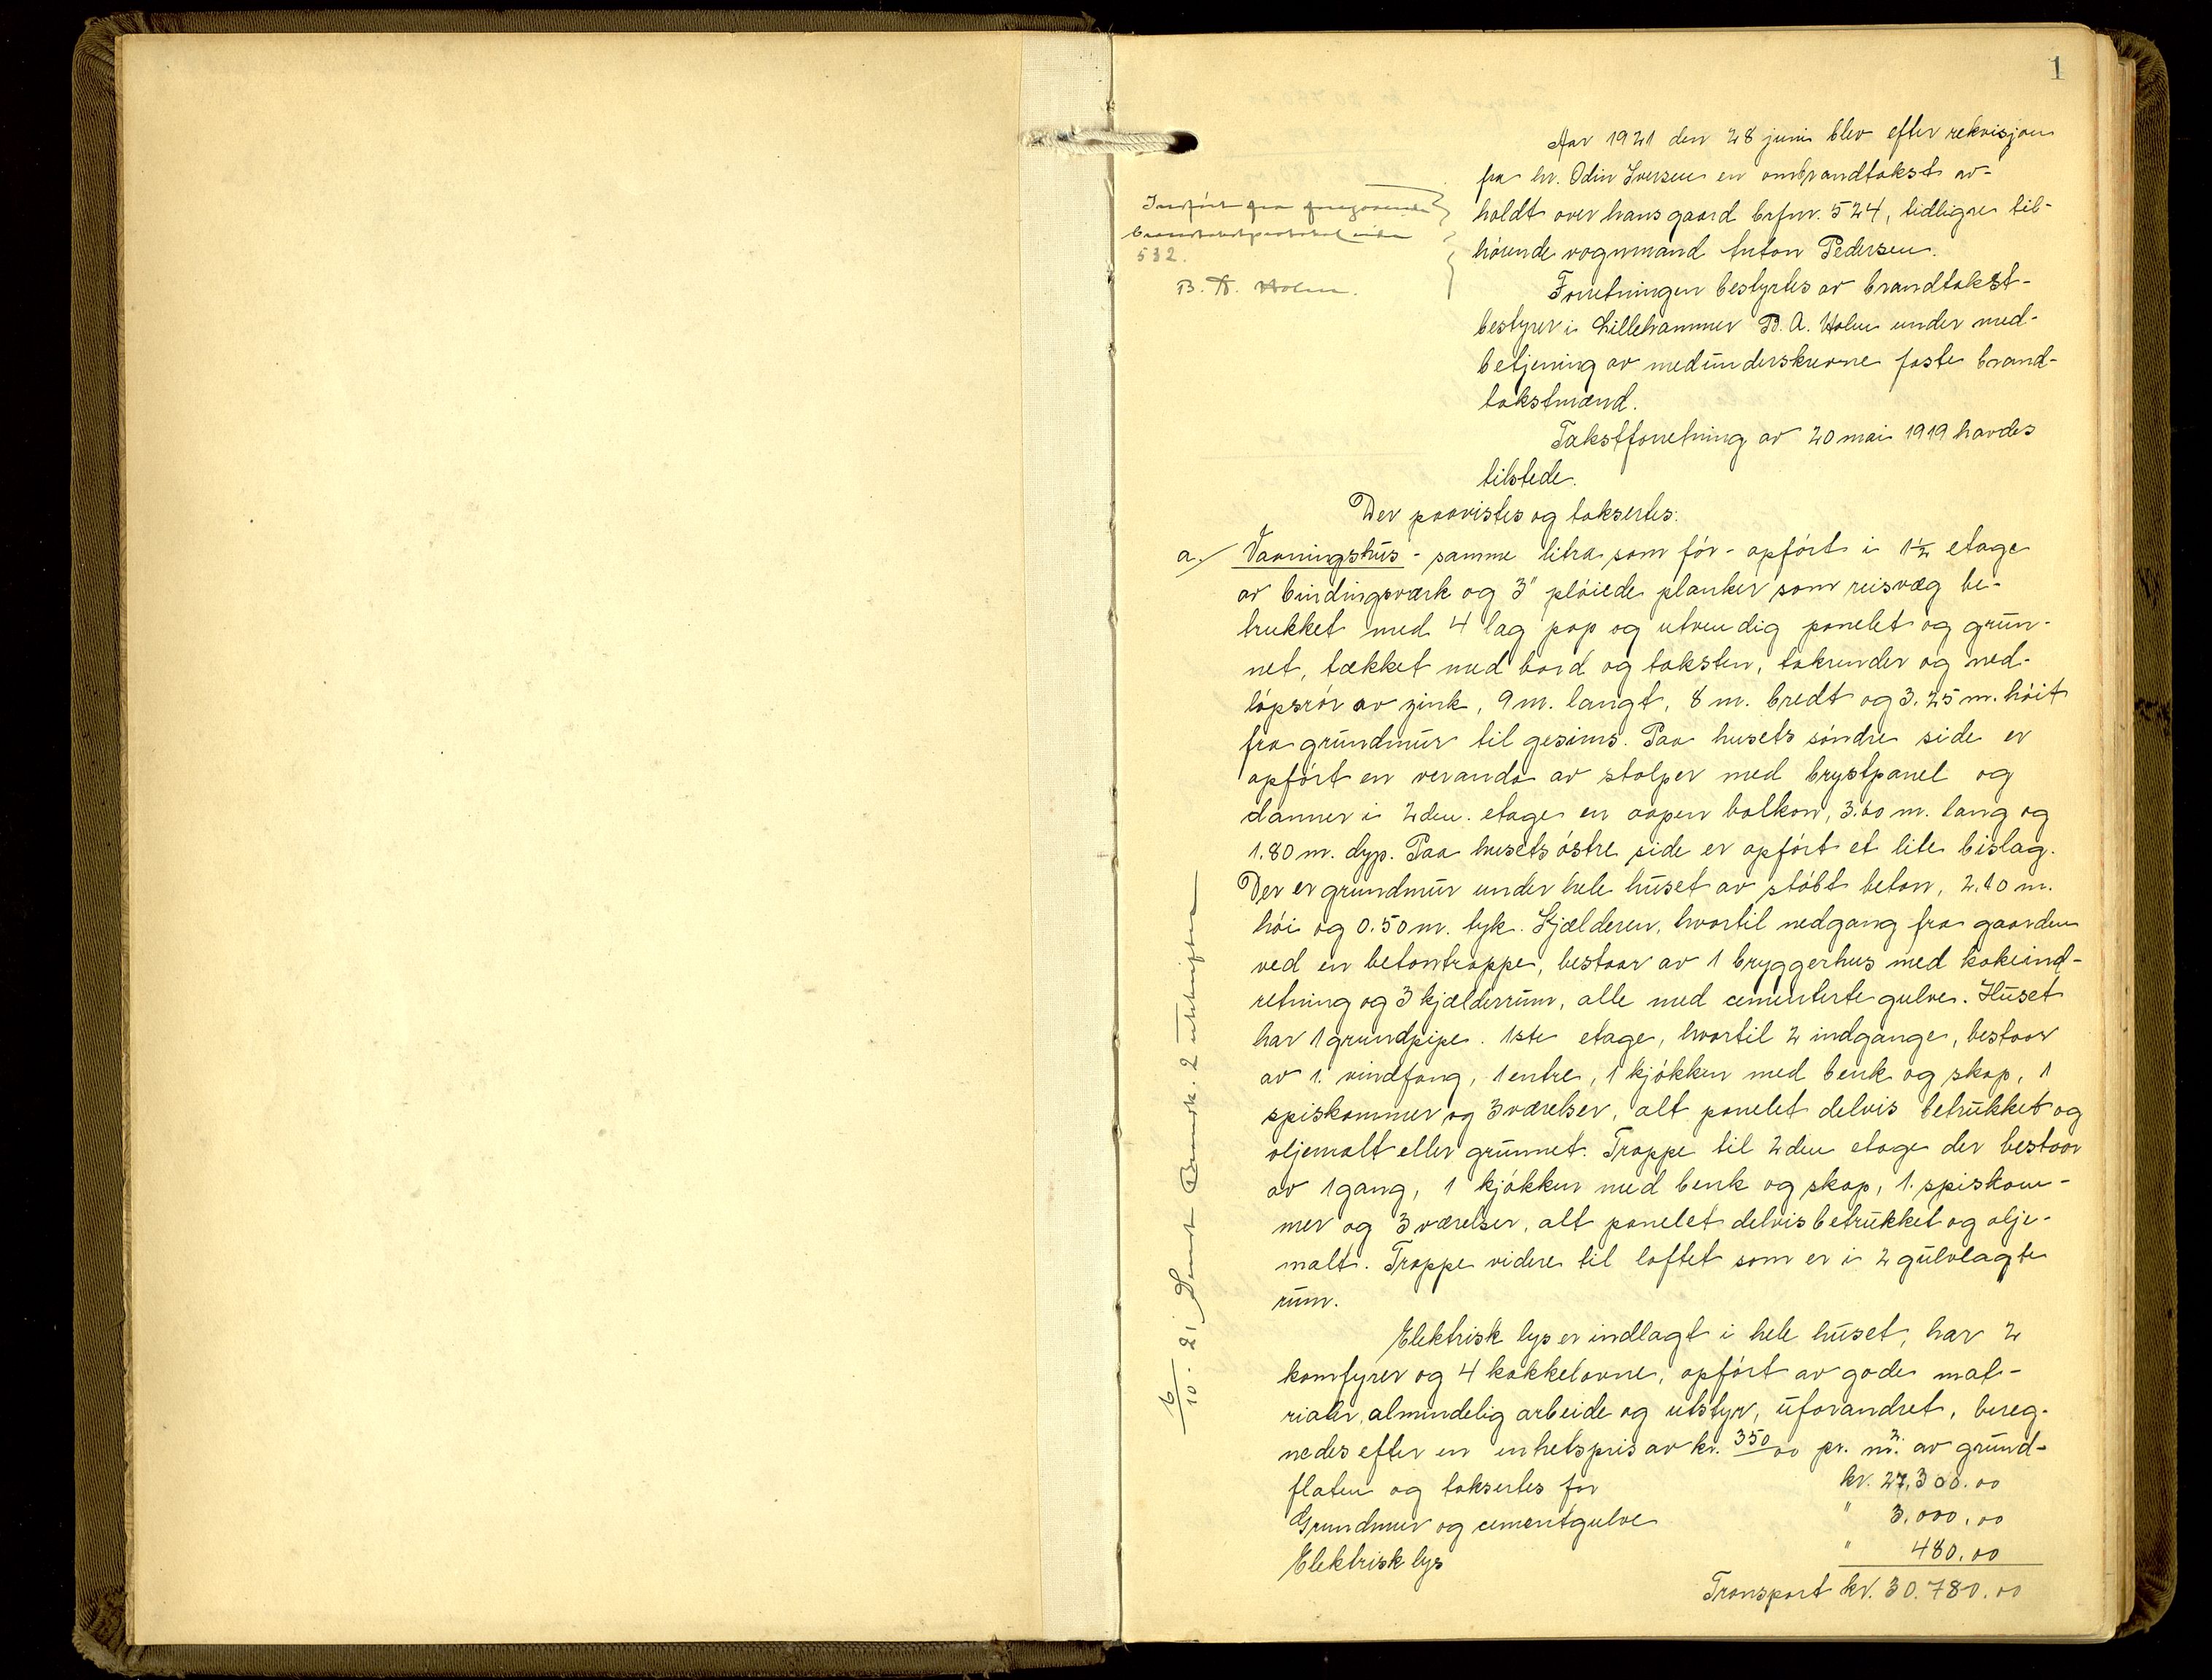 1
Aar 1921 den 28 juni blev efter rekvisjon
fra hr. Odin Iversen en ombrandtakst av-
holdt over hans gaard brfnr. 524, tidligre til-
hørende vognmand Anton Pedersen.
Indført fra foregaaende
brandtakstprotokol side
532.
B. A. Holm.
Forretningen bestyrtes av brandtakst-
bestyrer i Lillehammer B. A. Holm under med-
betjening av medunderskrevne faste brand-
takstmænd.
Takstforretning av 20 mai 1919 havdes
tilstede.
Der paavistes og taksertes:
a. Vaaningshus - samme litra som før - opført i 1½ etage
av bindingsværk og 3" pløiede planker som reisvæg be-
trukket med 4 lag pap og utvendig panelet og grun-
net, tækket med bord og taksten, takrender og ned-
løpsrør av zink, 9 m. langt, 8 m. bredt og 3.25 m. høit
fra grundmur til gesims. Paa husets søndre side er
opført en veranda av stolper med brystpanel og
danner i 2den. etage en aapen balkon, 3.60 m. lang og
1.80 m. dyp. Paa husets østre side er opført et lite bislag.
Der er grundmur under hele huset av støbt beton, 2.10 m.
høi og 0.50 m. tyk. Kjælderen, hvortil nedgang fra gaarden
ved en betontrappe, bestaar av 1 bryggerhus med kokeind-
retning og 3 kjælderrum, alle med cementerte gulve. Huset
har 1 grundpipe. 1ste etage, hvortil 2 indgange, bestaar
av 1. vindfang, 1 entre, 1 kjøkken med benk og skap, 1
spiskammer og 3 værelser, alt panelet delvis betrukket og
oljemalt eller grunnet. Trappe til 2den etage der bestaar
av 1 gang, 1 kjøkken med benk og skap, 1. spiskam-
mer og 3 værelser, alt panelet delvis betrukket og olje-
malt. Trappe videre til loftet som er i 2 gulvlagte
rum.
Elektrisk lys er indlagt i hele huset, har 2
komfyrer og 4 kakkelovne, opført av gode mat-
rialer, almindelig arbeide og utstyr, uforandret, bereg-
nedes efter en enhetspris av kr. 350.00 pr. m². av grund-
flaten og taksertes for kr. 27,300.00
Grundmur og cementgulve " 3.000.00
Elektrisk lys " 480.00
Transport kr. 30.780.00
6/10. 21 Sendt Brandk. 2 utskrifter